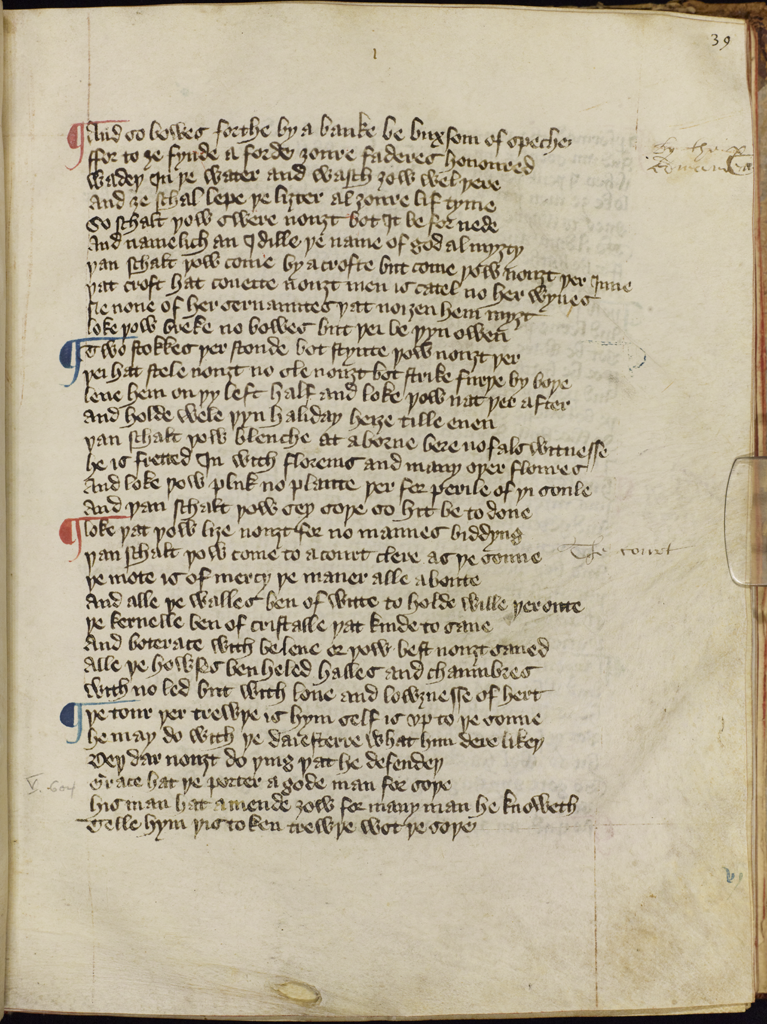 39
And so bowes forthe by a banke be buxsom of speche
ffor to ȝe fynde a forde ȝoure faderes honoured
Wadeþ In þe water and wasch ȝow wel þere
And ȝe schal lepe þe liȝter al ȝoure lif tyme
So schalt þow swere nouȝt bot It be for nede
And namelich an Idille þe name of god almyȝty
þan schalt þow come by a crofte but come þow nouȝt þer Inne
þat croft hat couette nouȝt men is catel no her wyues
ne none of her seruauntes þat noiȝen hem myȝt
loke þow breke no bowes but þei be þyn owen
Two stokkes þer stonde bot stynte þow nouȝt þer
þei hat stele nouȝt no sle nouȝt bot strike furþe by boþe
leue hem on þy left half and loke þow nat þer after
And holde wele þyn haliday heiȝe tille euen
þan schalt þow blenche at a borne bere no fals witnesse
he is fretted In with florens and many oþer floures
And loke þow pluk no plante þer for perile of þi soule
And þan schalt þow sey soþe so hit be to done
loke þat þow liȝe nouȝt for no mannes biddyng
þan schalt þow come to a court clere as þe sonne
The court
þe mote is of mercy þe maner alle aboute
And alle þe walles ben of witte to holde wille þeroute
þe kernelle ben of cristalle þat kinde to saue
And boterace with beleue or þow best nouȝt saued
Alle þe howses ben heled halles and chaumbres
with no led but with loue and lowȝnesse of hert
þe tour þer trewþe is hym self is vp to þe sonne
he may do with þe daiesterre what him dere likeþ
Deþ dar nouȝt do þing þat he defendeþ
Grace hat þe porter a gode man for soþe
his man hat amende ȝow for many man he knoweth
Telle hym þis token trewþe wot þe soþe